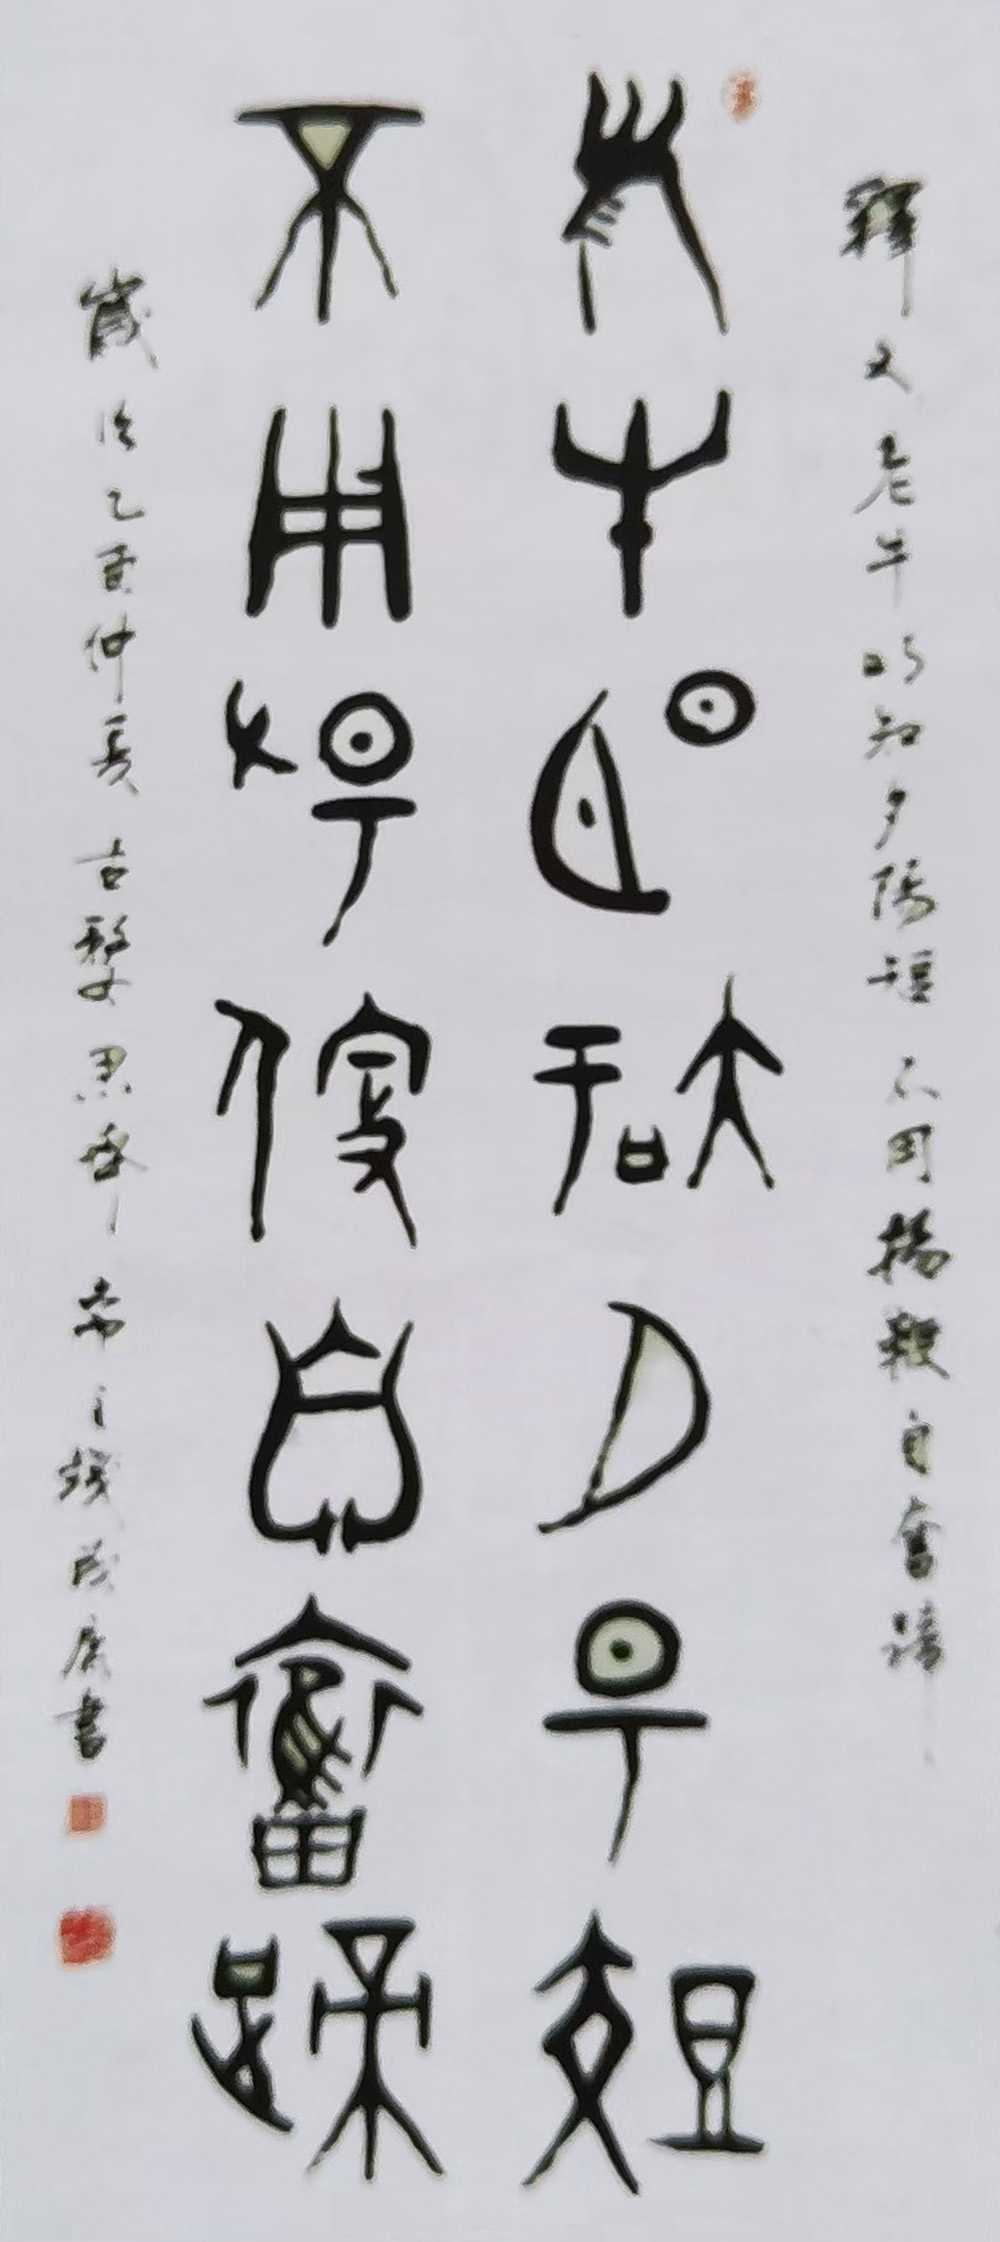 釋文老牛明知夕陽短不用揚鞭自奮蹄
老牛明知夕陽短
不用揚鞭自奮蹄
歲次乙酉仲夏古婺齋主錢書